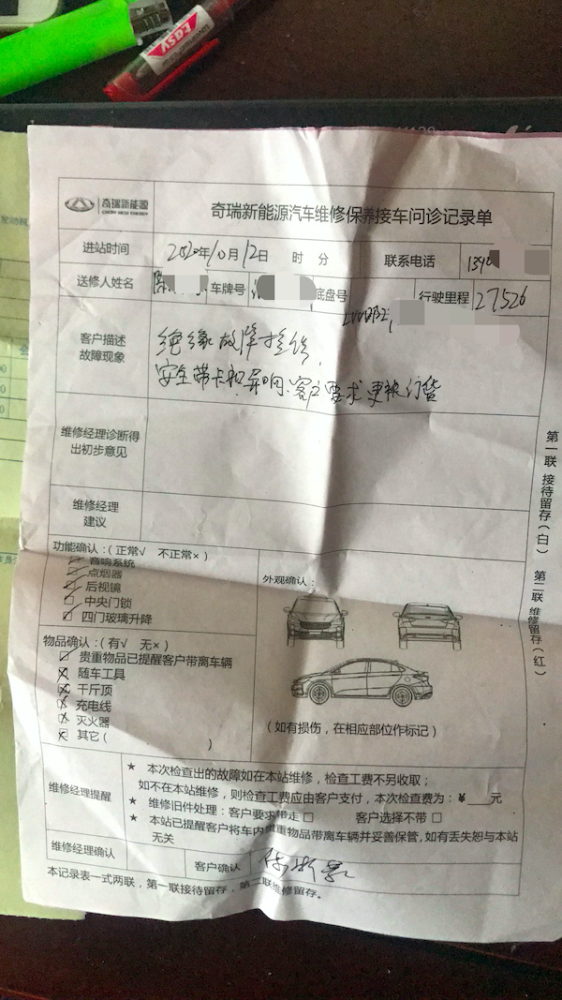 EASY
奇瑞新能源
奇瑞新能源汽车维修保养接车问诊记录单
进站时间 2020年10月12日 时 分 联系电话 139
送修人姓名 陈 车牌号 底盘号 行驶里程 27526
客户描述
故障现象
绝缘故障报修
安全带卡扣异响.客户要求更换订货
维修经理诊断得
出初步意见
维修经理
建议
功能确认:(正常√ 不正常×)
音响系统
点烟器
后视镜
中央门锁
四门玻璃升降
外观确认:
物品确认:(有√ 无×)
贵重物品已提醒客户带离车辆
随车工具
千斤顶
充电线
灭火器
其它( )
(如有损伤,在相应部位作标记)
维修经理提醒
★ 本次检查出的故障如在本站维修,检查工费不另收取;
如不在本站维修,则检查工费应由客户支付,本次检查费为:¥ 元
★ 维修旧件处理:客户要求带走 □ 客户选择不带 □
★ 本站已提醒客户将车内贵重物品带离车辆并妥善保管,如有丢失恕与本站
无关
维修经理确认 客户确认
本记录表一式两联,第一联接待留存,第二联维修留存。
第一联 接待留存(白)
第二联 维修留存(红)